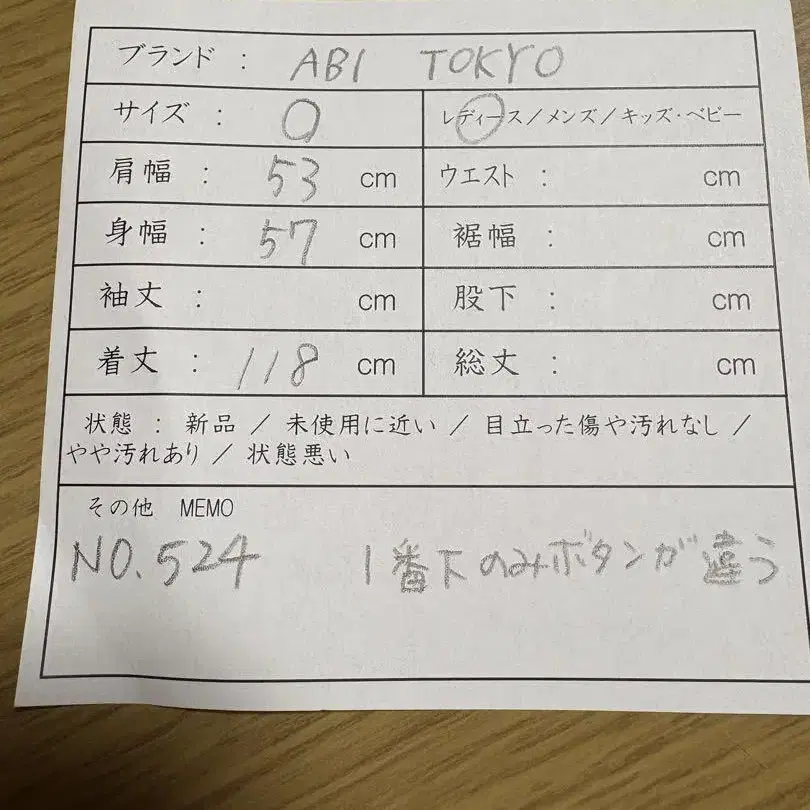 ブランド : ABI TOKYO
サイズ : 0 レディース/メンズ/キッズ・ベビー
肩幅 : 53 cm ウエスト : cm
身幅 : 57 cm 裾幅 : cm
袖丈 : cm 股下 : cm
着丈 : 118 cm 総丈 : cm
状態 : 新品 / 未使用に近い / 目立った傷や汚れなし /
やや汚れあり / 状態悪い
その他 MEMO
NO.524 1番下のみボタンが違う